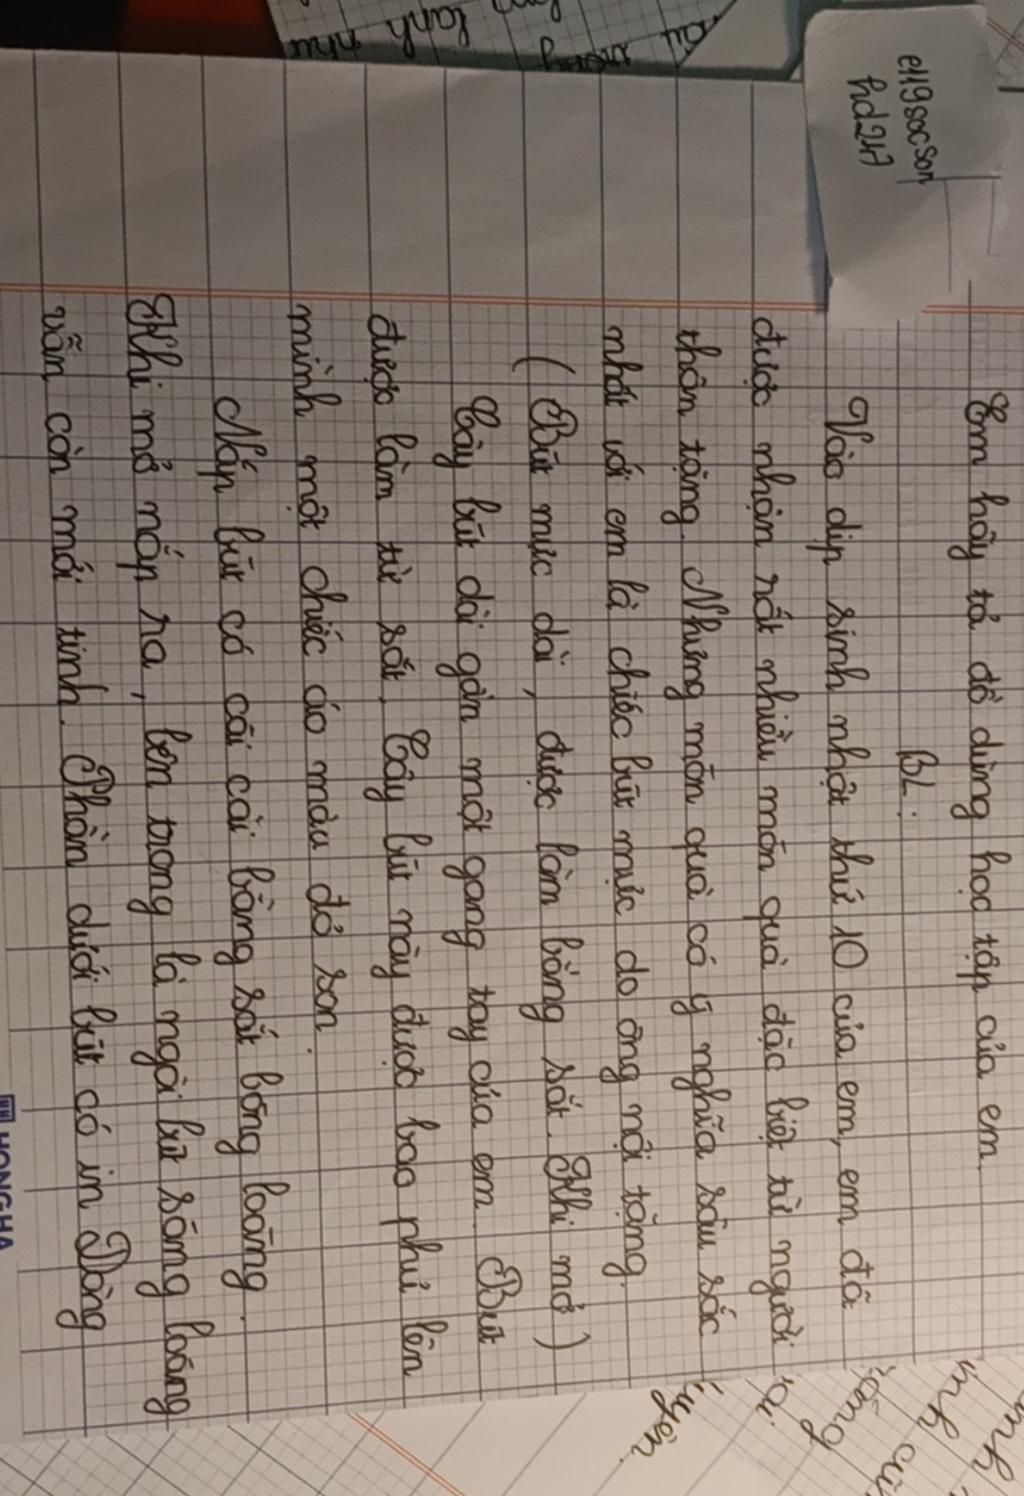 e119socson
hd247
Em hãy tả đồ dùng học tập của em.
BL:
Vào dịp sinh nhật thứ 10 của em, em đã
được nhận rất nhiều món quà đặc biệt từ người
thân tặng. Nhưng món quà có ý nghĩa sâu sắc
nhất với em là chiếc bút mực do ông nội tặng.
(Bút mực dài, được làm bằng sắt. Khi mở)
Cây bút dài gần một gang tay của em. Bút
được làm từ sắt. Cây bút này được bao phủ lên
mình một chiếc áo màu đỏ son.
Nắp bút có cái cài bằng sắt bóng loáng.
Khi mở nắp ra, bên trong là ngòi bút sáng loáng
vẫn còn mới tinh. Phần dưới bút có in Dòng
HONGHA